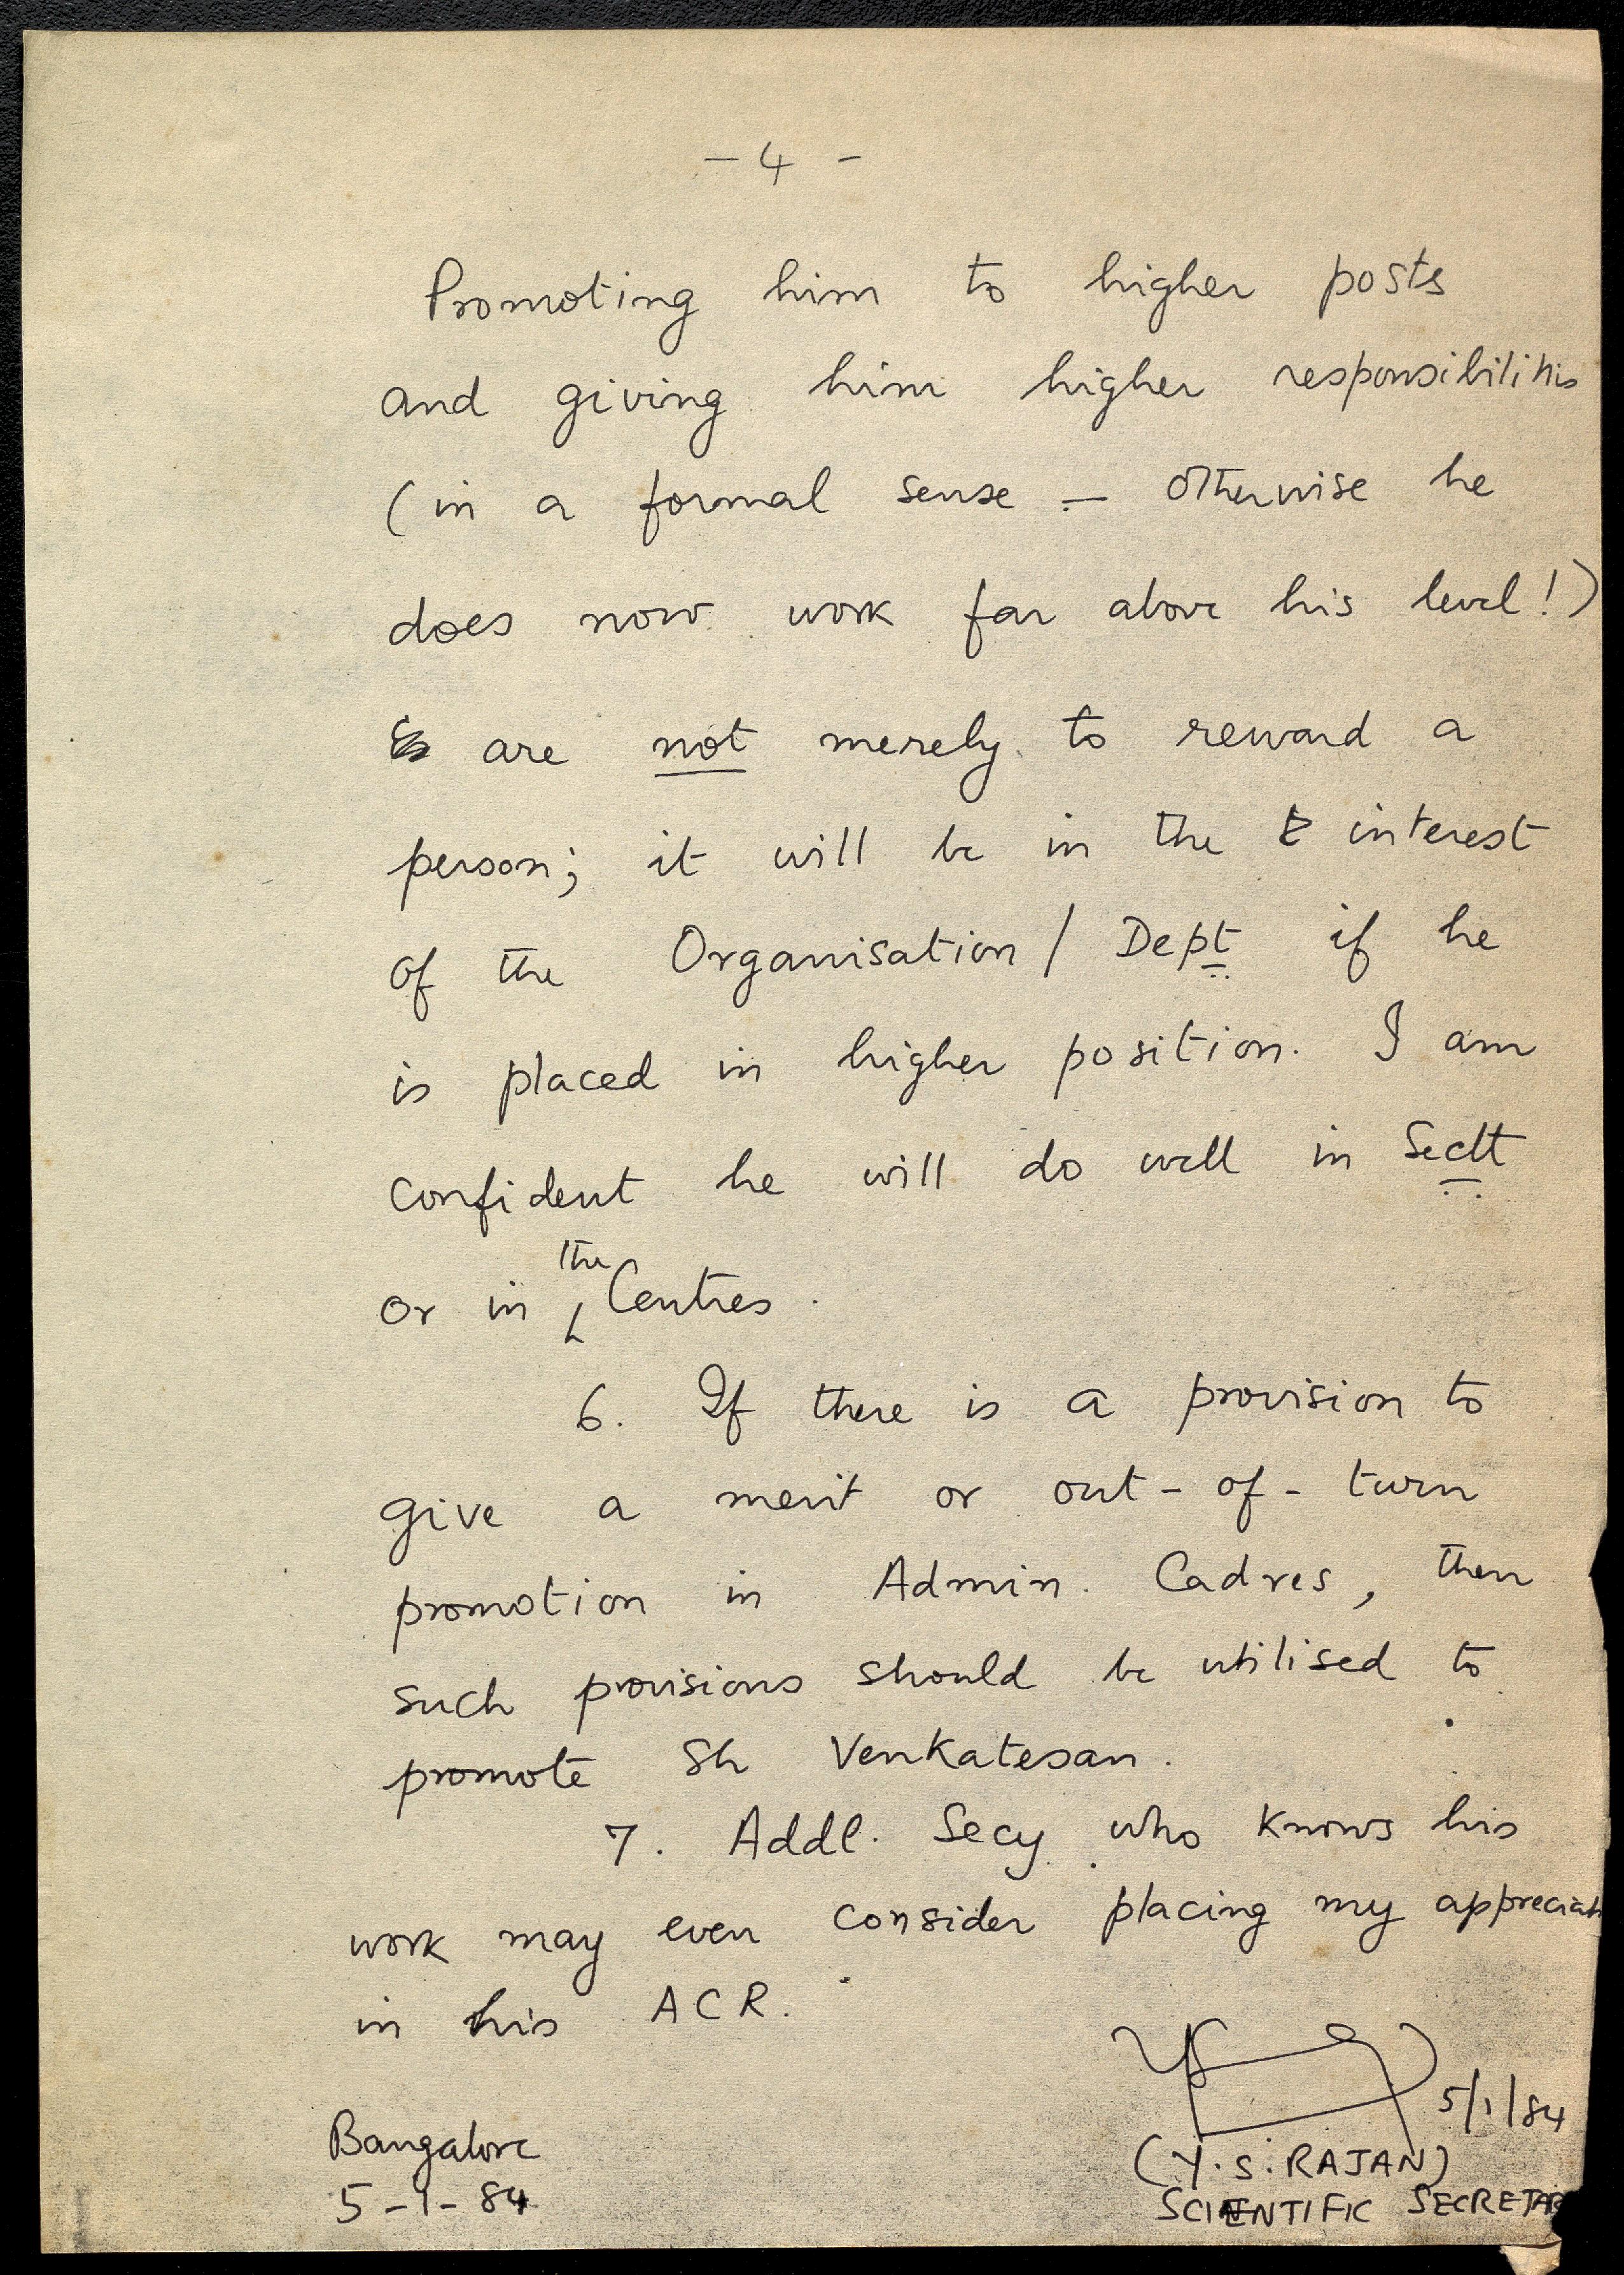 - 4 -
Promoting him to higher posts
and giving him higher responsibilities
(in a formal sense - otherwise he
does now work far above his level!)
are not merely to reward a
person; it will be in the interest
of the Organisation / Dept if he
is placed in higher position. I am
confident he will do well in Sectt
or in the Centres.
6. If there is a provision to
give a merit or out-of-turn
promotion in Admin. Cadres, then
such provisions should be utilised to
promote Sh Venkatesan.
7. Addl. Secy who knows his
work may even consider placing my appreciat
in his ACR.
5/1/84
Bangalore
(Y.S. RAJAN)
5-1-84
SCIENTIFIC SECRETAR